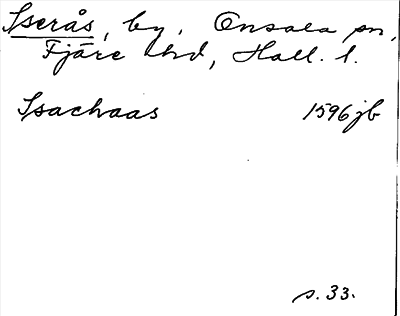 Iserås, by, Onsala sn,
Fjäre hd, Hall. l.
Isachaas 1596 jb
s. 33.